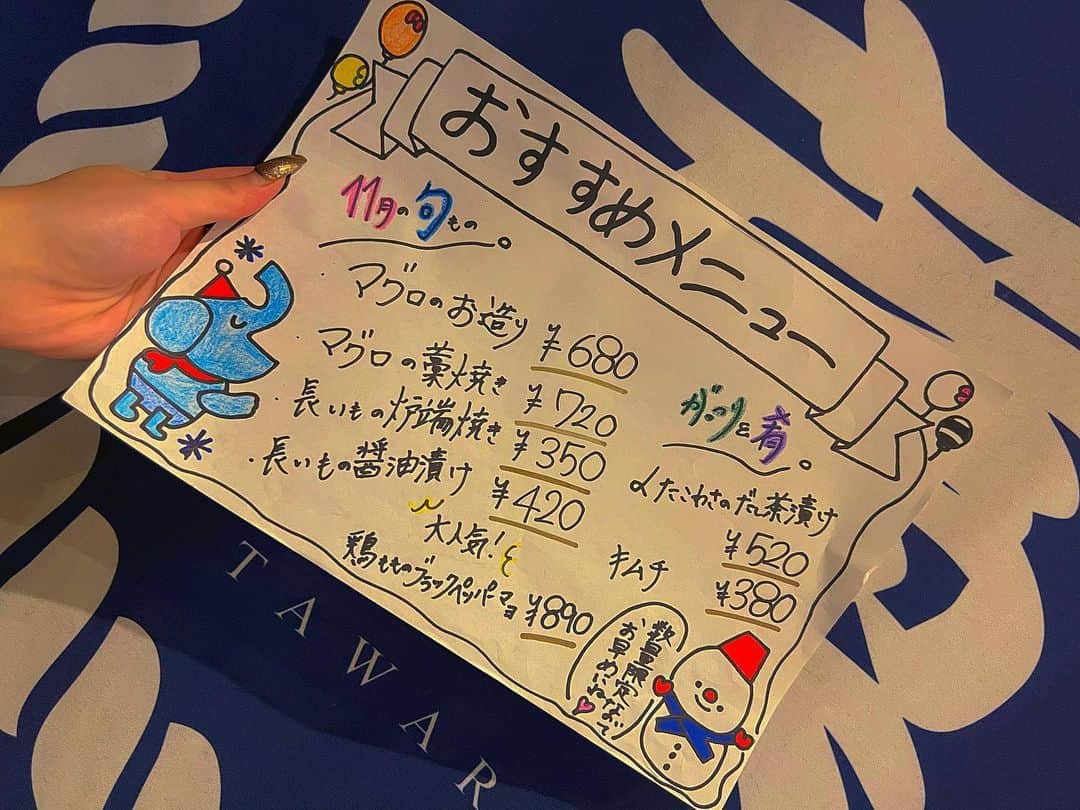 おすすめメニュー
11月の旬もの
・マグロのお造り ¥680
・マグロの藁焼き ¥720
・長いもの炉端焼き ¥350
・長いもの醤油漬け ¥420
大人気!
鶏もものブラックペッパーマヨ ¥890
がっつりと肴
たこわさのだし茶漬け
¥520
キムチ ¥380
数量限定なので
お早めにね
TAWAR